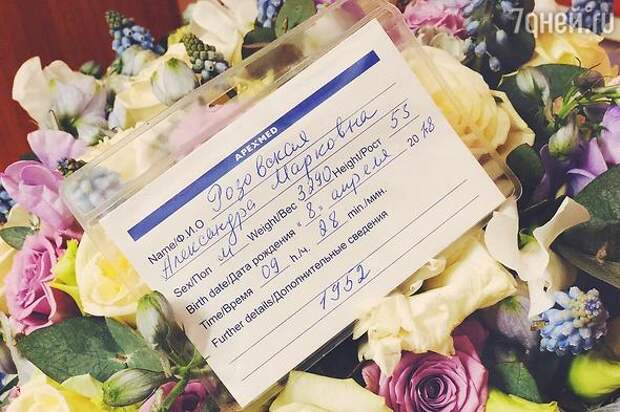 7дней.ru
APEXMED
Name/Ф.И.О Розовская
Александра Марковна
Sex/Пол Weight/Вес 3390 Height/Рост 53
Birth date/Дата рождения "8" апреля 2018
Time/Время 09 h./ч. 28 min./мин.
Further details/Дополнительные сведения
1952